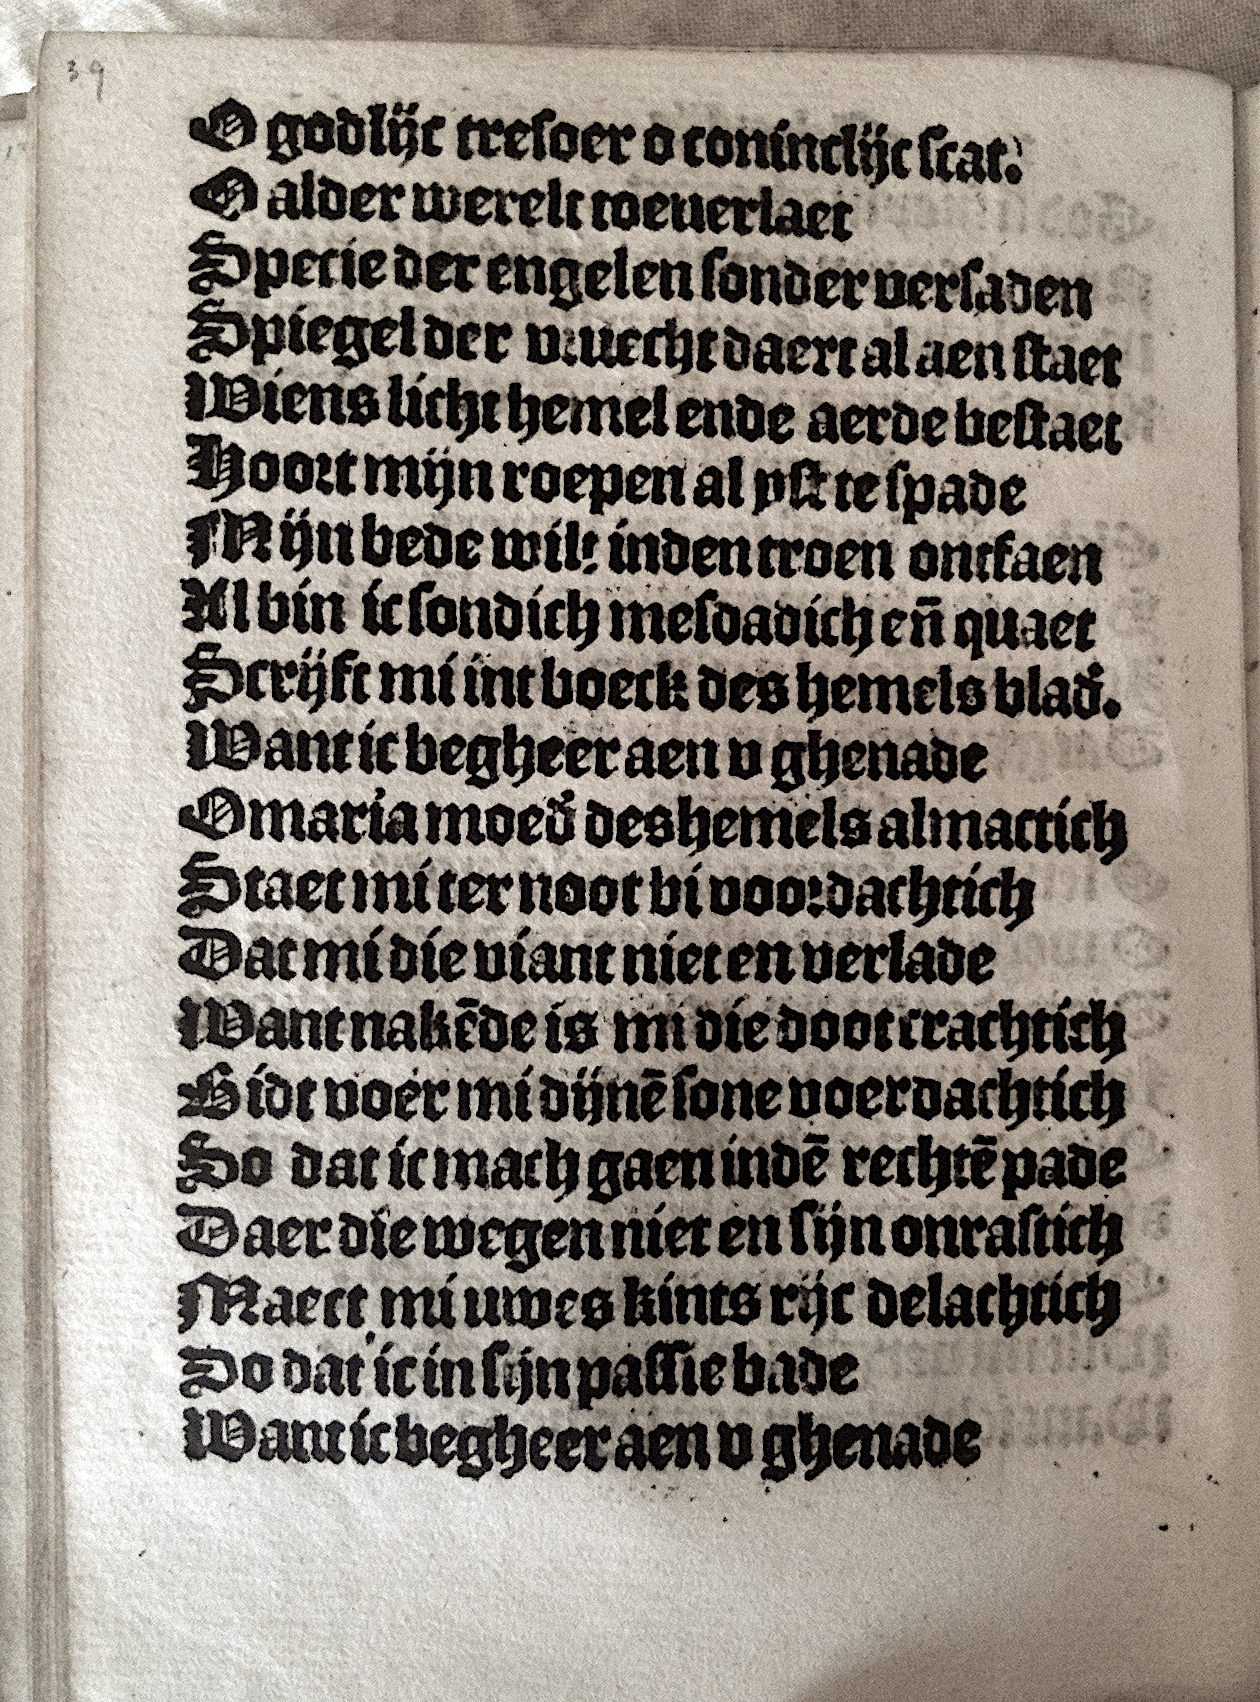 39
O godlijc tresoer o coninclijc scat.
O alder werelt toeuerlaet
Specie der engelen sonder versaden
Spiegel der vruecht daert al aen staet
Wiens licht hemel ende aerde bestaet
Hoort mijn roepen al yst te spade
Mijn bede wilt inden troen ontfaen
Al bin ic sondich mesdadich en̄ quaet
Scrijft mi int boeck des hemels blad'.
Want ic begheer aen v ghenade
O maria moed' des hemels almactich
Staet mi ter noot bi voordachtich
Dat mi die viant niet en verlade
Want nakēde is mi die doot crachtich
Bidt voer mi dijnē sone voerdachtich
So dat ic mach gaen indē rechtē pade
Daer die wegen niet en sijn onrastich
Maect mi uwes kints rijc delachtich
So dat ic in sijn passie bade
Want ic begheer aen v ghenade